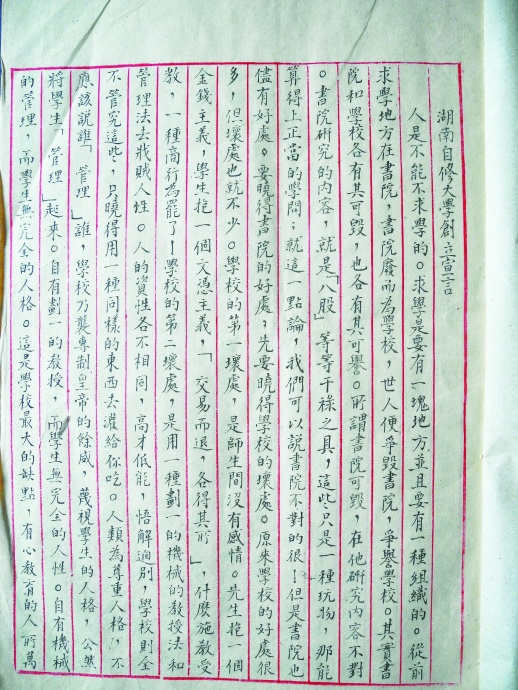 湖南自修大學創立宣言
人是不能不求學的。求學是要有一塊地方並且要有一種組織的。從前
求學地方在書院，書院廢而為學校，世人便爭毀書院，爭譽學校。其實書
院和學校各有其可毀，也各有其可譽。所謂書院可毀，在他研究內容不對
。書院研究的內容，就是「八股」等等干祿之具，這些只是一種玩物，那能
算得上正當的學問；就這一點論，我們可以説書院不對的很！但是書院也
儘有好處。要曉得書院的好處，先要曉得學校的壞處。原來學校的好處很
多，但壞處也就不少。學校的第一壞處，是師生間沒有感情。先生抱一個
金錢主義，學生抱一個文憑主義，「交易而退，各得其所」，什麼施教受
教，一種商行為罷了！學校的第二壞處，是用一種劃一的機械的教授法和
管理法去戕賊人性。人的資性各不相同，高才低能，悟解逈別，學校則全
不管究這些，只曉得用一種同樣的東西去灌給你吃。人類為尊重人格，不
應該說誰「管理」誰，學校乃襲專制皇帝的餘威，蔑視學生的人格，公然
將學生「管理」起來。自有劃一的教授，而學生無完全的人性。自有機械
的管理，而學生無完全的人格。這是學校最大的缺點，有心教育的人所萬